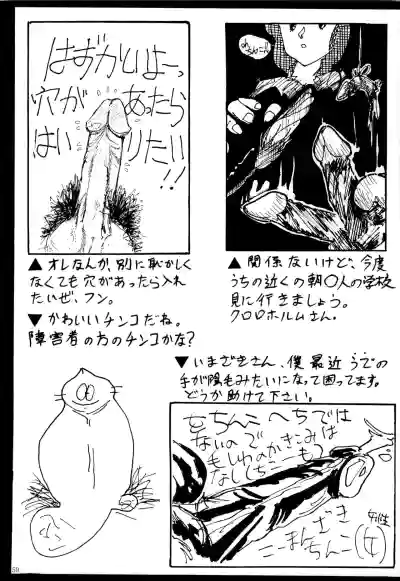 はずかしいよーっ
穴があったら
はいりたい!!
▲オレなんか、別に恥かしく
なくても穴があったら入れ
たいぜ、フン。
▲関係ないけど、今度
うちの近くの朝〇人の学校
見に行きましょう。
クロロホルムさん。
▼かわいいチンコだね。
障害者の方のチンコかな?
▼いまざきさん、僕最近うでの
手が陰毛みたいになって困ってます。
どうか助けて下さい。
ないので
もしれのかきこみは
なし
59